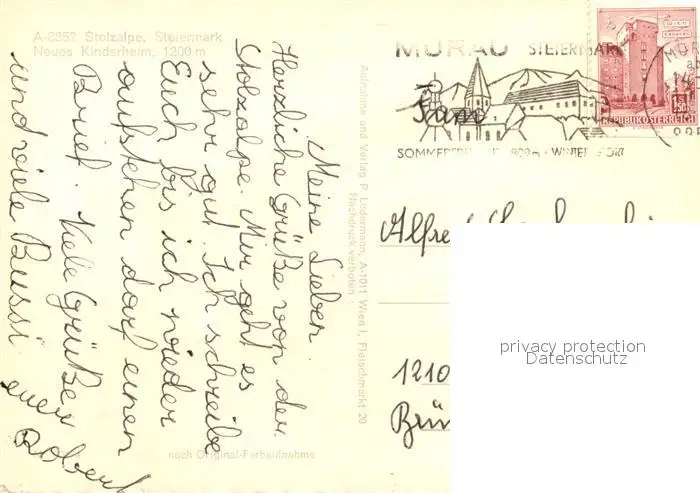 A-8852 Stolzalpe, Steiermark
Neues Kinderheim, 1200 m
Meine Lieben.
Herzliche Grüße von der
Stolzalpe. Mir geht es
sehr gut. Ich schreibe
Euch bis ich wieder
aufstehen darf einen
Brief. Viele Grüße
und viele Bussi
euer
Robert
nach Original-Farbaufnahme
Aufnahme und Verlag P. Ledermann, A-1011 Wien I, Fleischmarkt 20
Nachdruck verboten
MURAU STEIERMARK
WIEN
REPUBLIK ÖSTERREICH
Fam
Alfre
1210
Brü
privacy protection
Datenschutz